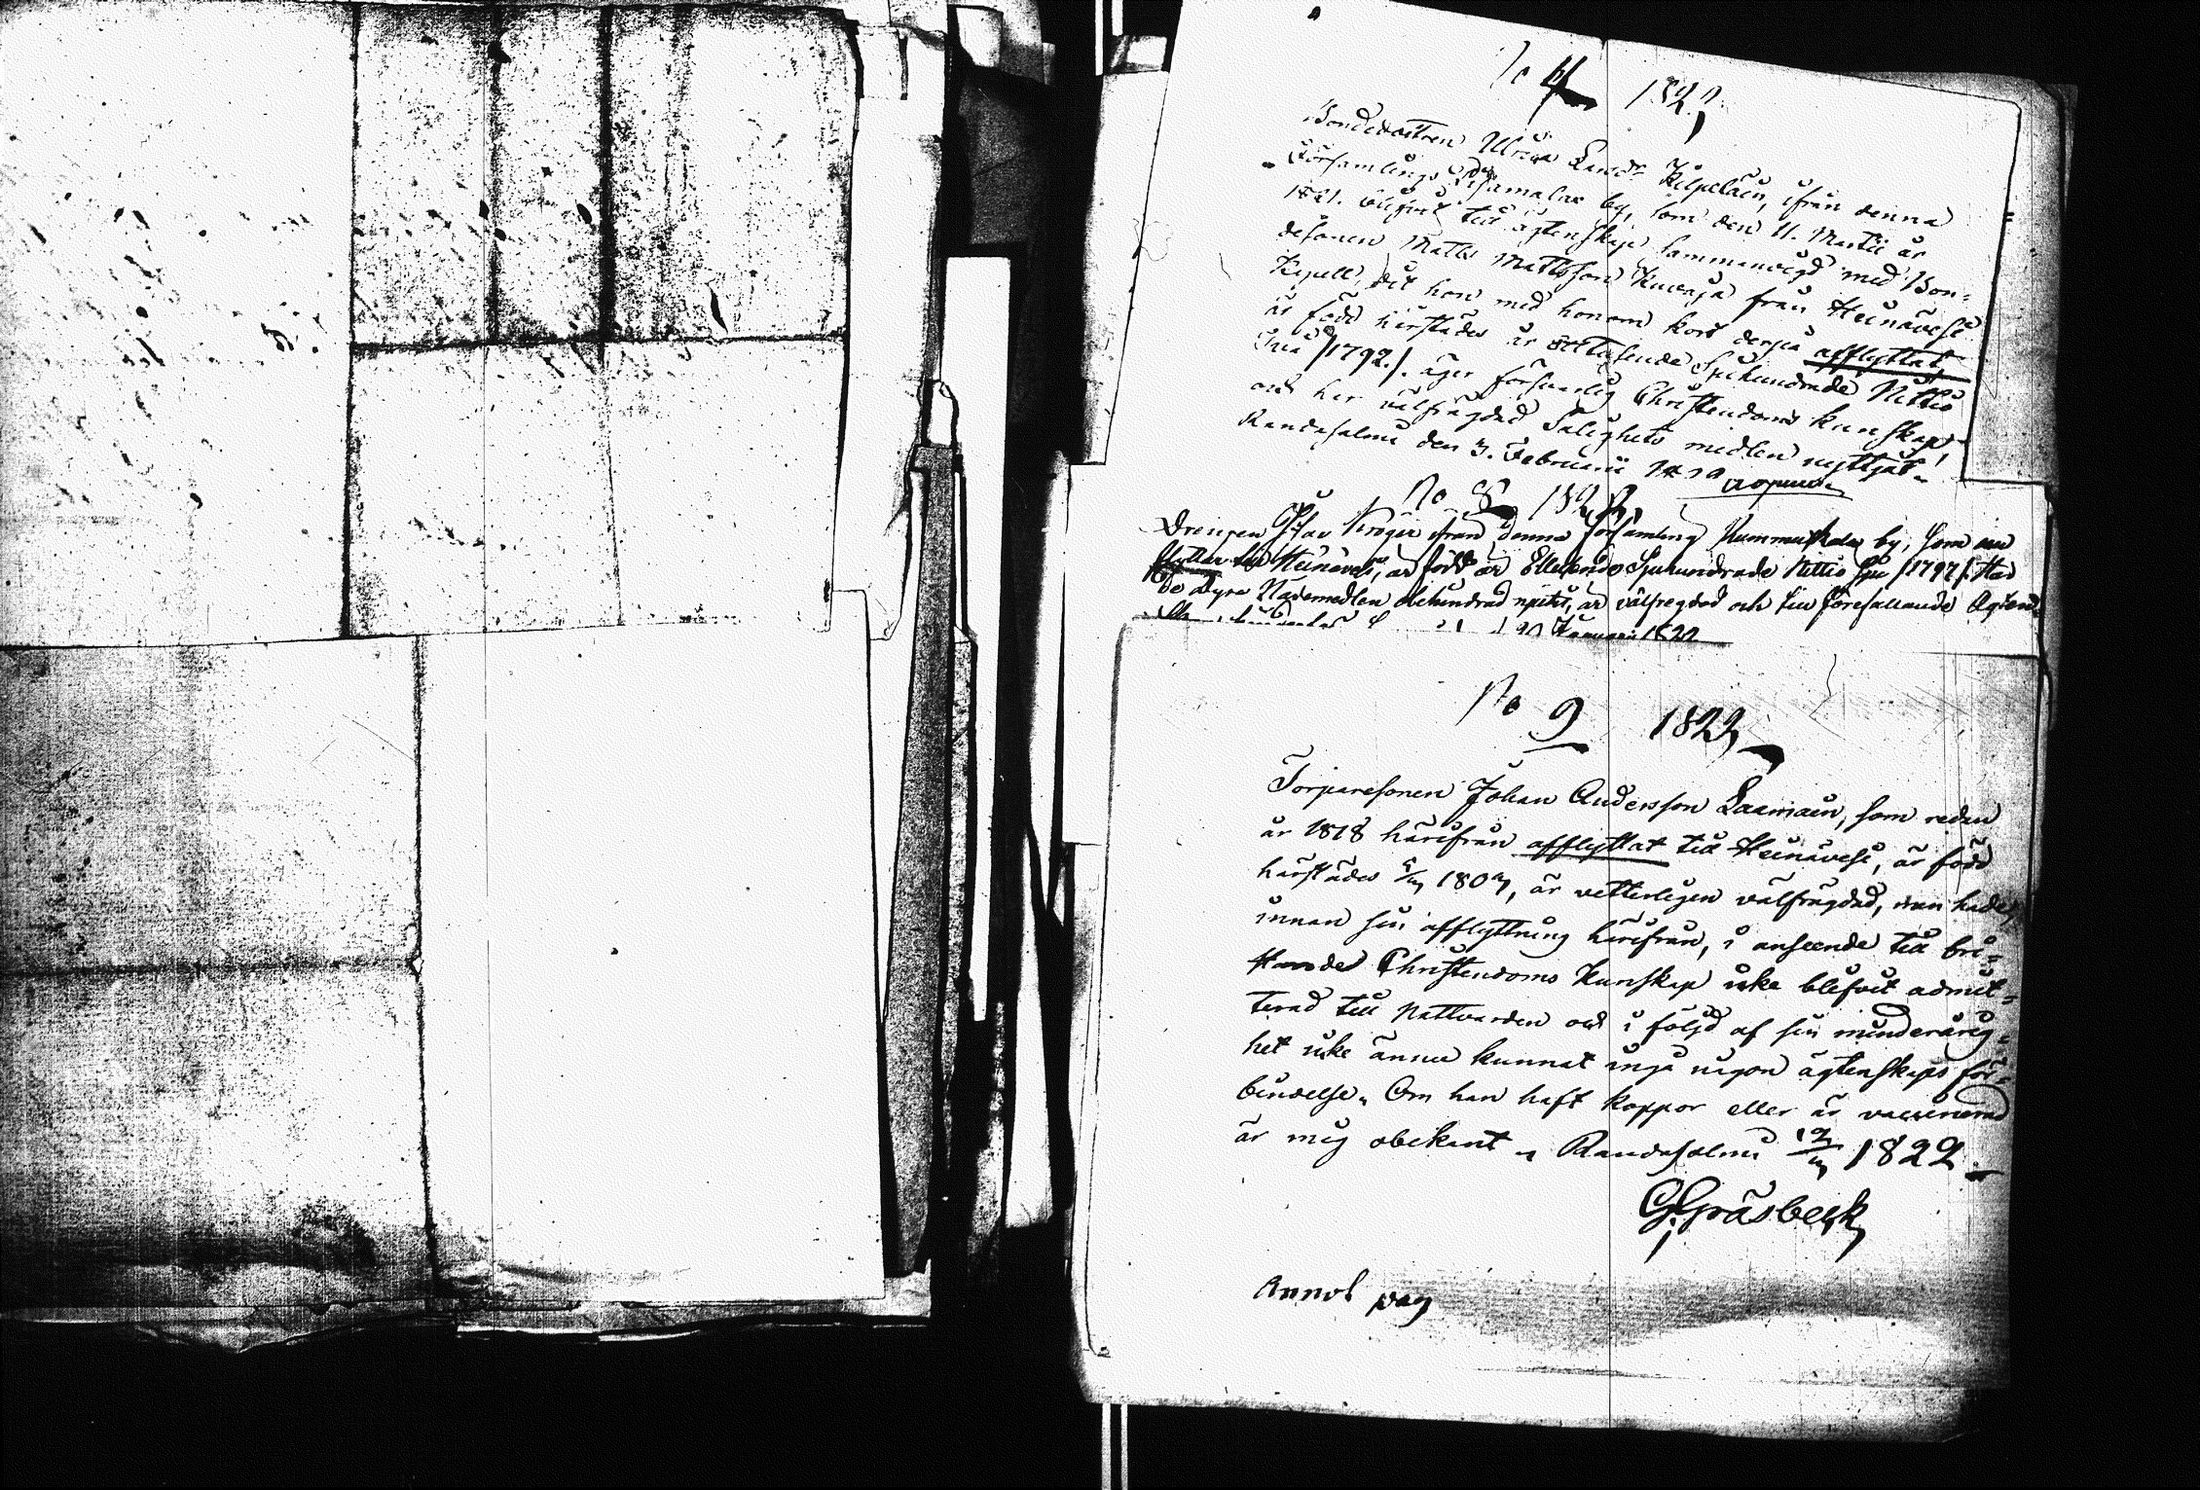 No 4 1822,
Bondedottren Ulrica Larsdr Kilpeläin, ifrån denna
Församlings by, som den 11. Martii år
1821. blifvit till ägtenskap sammanvigd med Bon=
desonen Matts Mattsson Kuvaja från Heinävesi
Kapell, dit hon med honom kort derpå afflyttat,
är född härstädes år Ettusende Sjuhundrade Nittio
två /1792/. äger försvarlig Christendoms kunskap,
och har välfrägdad Salighets medlen nyttjat.
Randasalmi den 3. Februarii
No 8 1822,
Drengen Gustav Kröger ifrån denna Församling by, som nu
flyttar till Heinävesi, är född år Ettusende Sjuhundrade Nittio Sju /1797/. Har
de dyra Nådemedlen obehindrad njutit, är välfregdad och till förefallande Ägtenskap
Januari 1822
No 9 1822,
Torparesonen Johan Andersson Laamain, som redan
år 1818 härifrån afflyttat till Heinävesi, är född
härstädes 180, är vetterligen välfrägdad, men hade,
innan sin afflyttning härifrån, i anseende till bri=
stande Christendoms kunskap icke blifvit admit=
terad till Nattvarden och i följd af sin minderårig=
het icke ännu kunnat ingå någon ägtenskaps för=
bindelse. Om han haft koppor eller är vaccinerad
är mig obekant. Randasalmi 1822
G. Gräsbeck